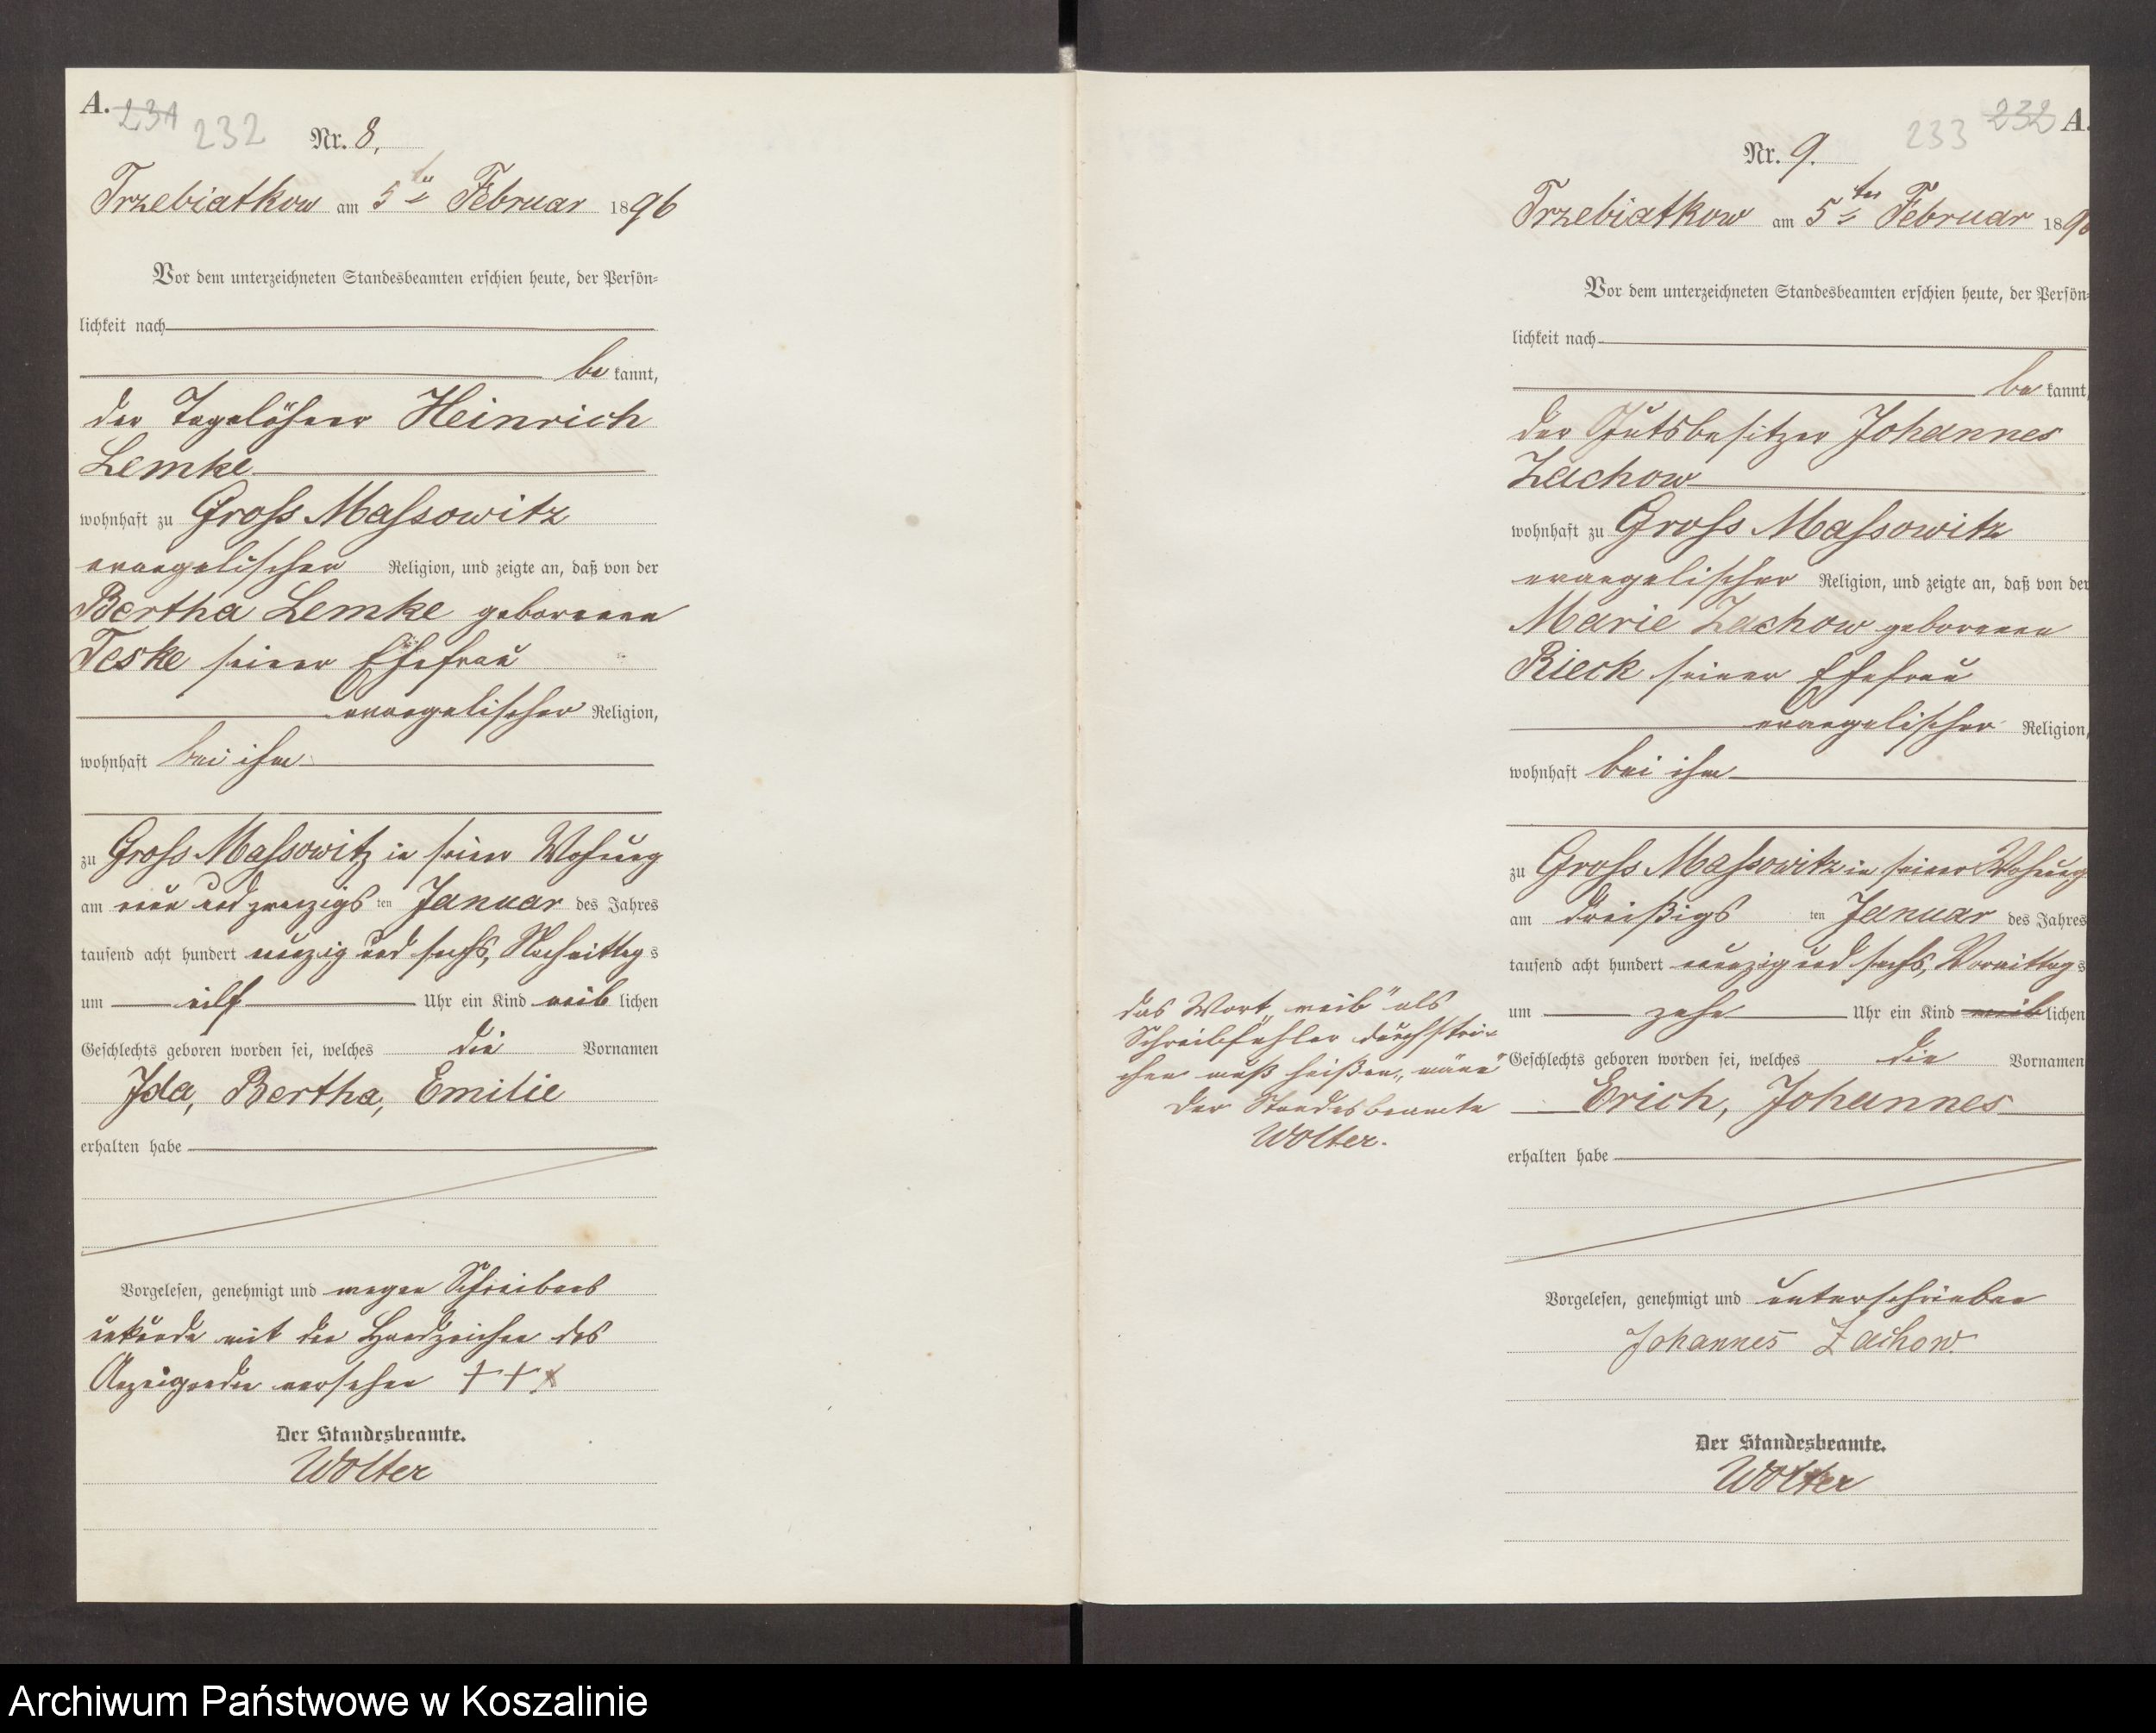 A.
231
232
Nr. 8,
Trzebiatkow am 5ten Februar 1896
Vor dem unterzeichneten Standesbeamten erschien heute, der Persön-
lichkeit nach
be kannt,
der Tagelöhner Heinrich
Lemke
wohnhaft zu Gross Massowitz
evangelischer Religion, und zeigte an, daß von der
Bertha Lemke geborenen
Teske seiner Ehefrau
evangelischer Religion,
wohnhaft bei ihm
zu Gross Massowitz in seiner Wohnung
am neun und zwanzigs ten Januar des Jahres
tausend acht hundert neunzig und sechs, Nachmittag s
um eilf Uhr ein Kind weib lichen
Geschlechts geboren worden sei, welches die Vornamen
Ida, Bertha, Emilie
erhalten habe
Vorgelesen, genehmigt und wegen Schreibens
unkunde mit den Handzeichen des
Anzeigenden versehen + + +
Der Standesbeamte.
Wolter
232
A.
233
Nr. 9.
Trzebiatkow am 5ten Februar 1896
Vor dem unterzeichneten Standesbeamten erschien heute, der Persön-
lichkeit nach
be kannt,
der Gutsbesitzer Johannes
Zachow
wohnhaft zu Gross Massowitz
evangelischer Religion, und zeigte an, daß von der
Marie Zachow geborenen
Rieck seiner Ehefrau
evangelischer Religion,
wohnhaft bei ihm
zu Gross Massowitz in seiner Wohnung
am dreißigs ten Januar des Jahres
tausend acht hundert neunzig und sechs, Vormittag s
um zehn Uhr ein Kind weib lichen
Geschlechts geboren worden sei, welches die Vornamen
Erich, Johannes
erhalten habe
das Wort „weib" als
Schreibfehler durchstri-
chen muß heißen „männ"
Der Standesbeamte
Wolter.
Vorgelesen, genehmigt und unterschrieben
Johannes Zachow.
Der Standesbeamte.
Wolter
Archiwum Państwowe w Koszalinie